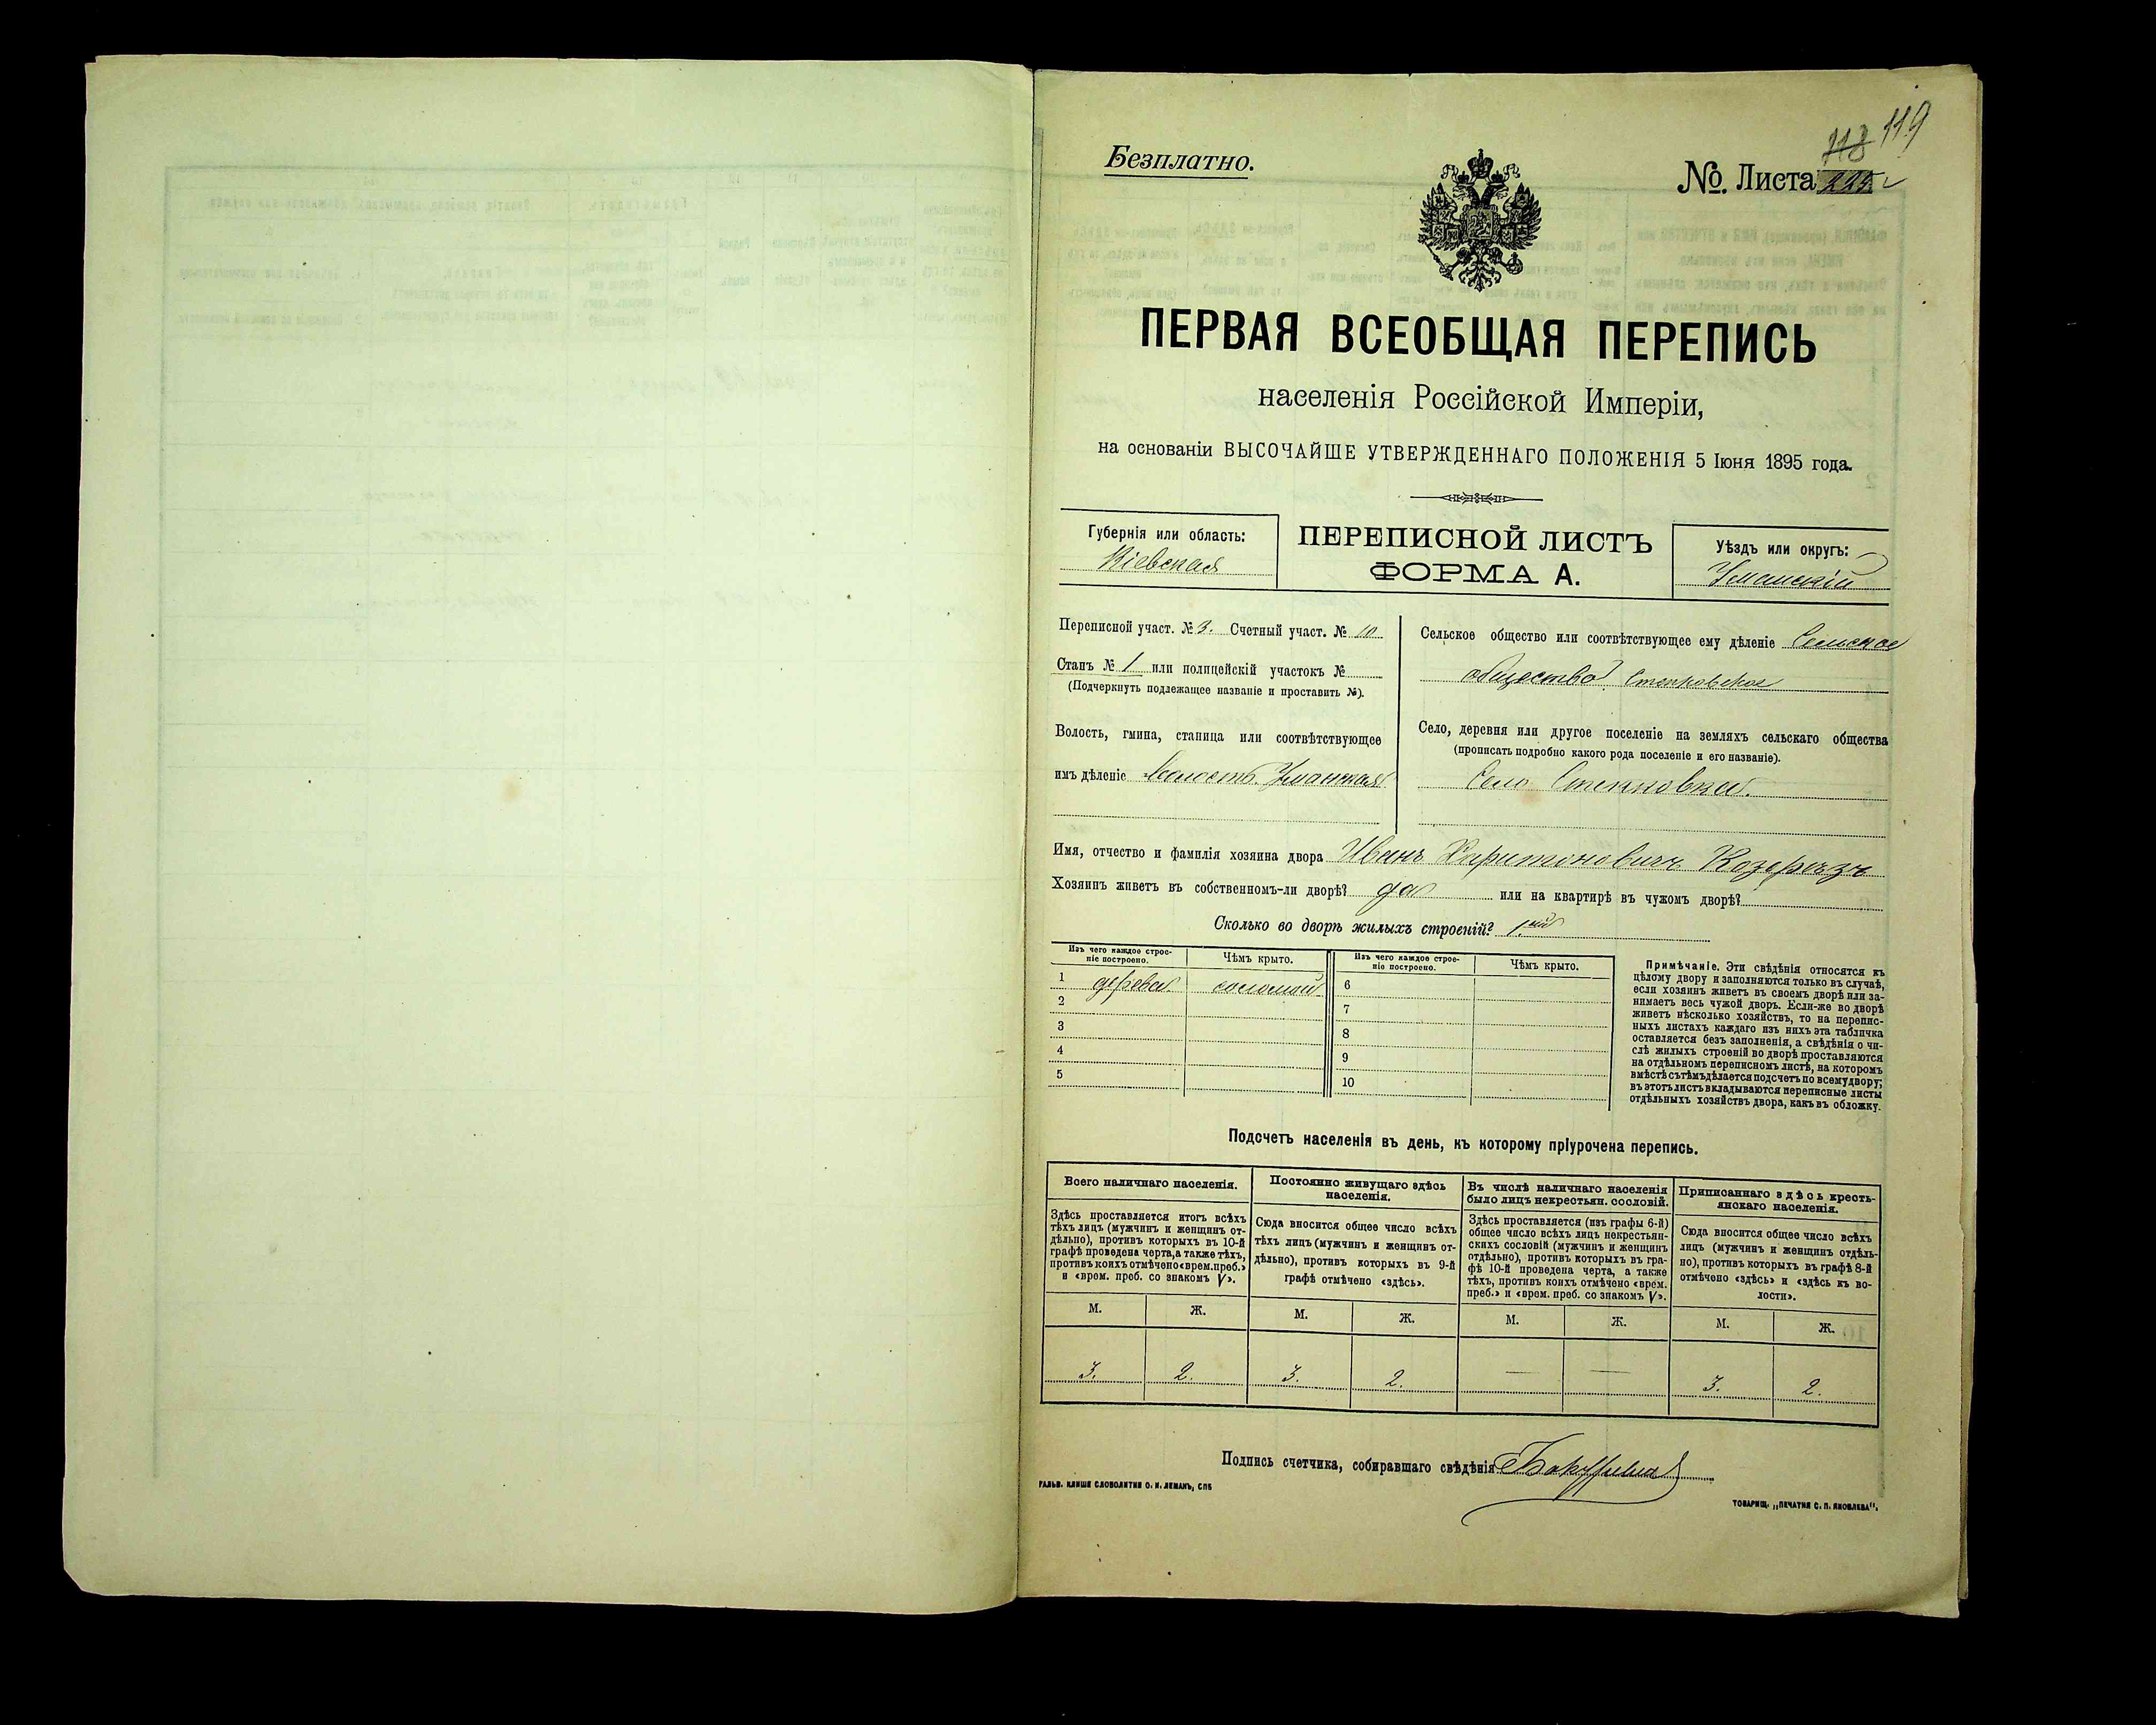 118 119
Безплатно.
№. Листа 225
ПЕРВАЯ ВСЕОБЩАЯ ПЕРЕПИСЬ
населенія Россійской Имперіи,
на основаніи ВЫСОЧАЙШЕ УТВЕРЖДЕННАГО ПОЛОЖЕНІЯ 5 Іюня 1895 года.
Губернія или область:
Кіевская
ПЕРЕПИСНОЙ ЛИСТЪ
ФОРМА А.
Уѣздъ или округъ:
Уманскій
Переписной участ. № 3. Счетный участ. № 10
Станъ № 1 или полицейскій участокъ №
(Подчеркнуть подлежащее названіе и проставить №).
Волость, гмина, станица или соотвѣтствующее
имъ дѣленіе Волость Уманская
Сельское общество или соотвѣтствующее ему дѣленіе Сельское
общество Стенковское
Село, деревня или другое поселеніе на земляхъ сельскаго общества
(прописать подробно какого рода поселеніе и его названіе).
Село
Имя, отчество и фамилія хозяина двора Иванъ Харитоновичъ
Хозяинъ живетъ въ собственномъ-ли дворѣ? да или на квартирѣ въ чужомъ дворѣ?
Сколько во дворѣ жилыхъ строеній? 1
Изъ чего каждое строе-
ніе построено.
Чѣмъ крыто.
1 дерева соломой
2
3
4
5
Изъ чего каждое строе-
ніе построено.
Чѣмъ крыто.
6
7
8
9
10
Примѣчаніе. Эти свѣдѣнія относятся къ
цѣлому двору и заполняются только въ случаѣ,
если хозяинъ живетъ въ своемъ дворѣ или за-
нимаетъ весь чужой дворъ. Если-же во дворѣ
живетъ нѣсколько хозяйствъ, то на перепис-
ныхъ листахъ каждаго изъ нихъ эта табличка
оставляется безъ заполненія, а свѣдѣнія о чи-
слѣ жилыхъ строеній во дворѣ проставляются
на отдѣльномъ переписномъ листѣ, на которомъ
вмѣстѣ съ тѣмъ дѣлается подсчетъ по всему двору;
въ этотъ листъ вкладываются переписные листы
отдѣльныхъ хозяйствъ двора, какъ въ обложку.
Подсчетъ населенія въ день, къ которому пріурочена перепись.
Всего наличнаго населенія.
Здѣсь проставляется итогъ всѣхъ
тѣхъ лицъ (мужчинъ и женщинъ от-
дѣльно), противъ которыхъ въ 10-й
графѣ проведена черта, а также тѣхъ,
противъ коихъ отмѣчено «врем. преб.»
и «врем. преб. со знакомъ V».
М. Ж.
3. 2.
Постоянно живущаго здѣсь
населенія.
Сюда вносится общее число всѣхъ
тѣхъ лицъ (мужчинъ и женщинъ от-
дѣльно), противъ которыхъ въ 9-й
графѣ отмѣчено «здѣсь».
М. Ж.
3. 2.
Въ числѣ наличнаго населенія
было лицъ некрестьян. сословій.
Здѣсь проставляется (изъ графы 6-й)
общее число всѣхъ лицъ некрестьян-
скихъ сословій (мужчинъ и женщинъ
отдѣльно), противъ которыхъ въ гра-
фѣ 10-й проведена черта, а также
тѣхъ, противъ коихъ отмѣчено «врем.
преб.» и «врем. преб. со знакомъ V».
М. Ж.
— —
Приписаннаго здѣсь кресть-
янскаго населенія.
Сюда вносится общее число всѣхъ
лицъ (мужчинъ и женщинъ отдѣль-
но), противъ которыхъ въ графѣ 8-й
отмѣчено «здѣсь» и «здѣсь къ во-
лости».
М. Ж.
3. 2.
Подпись счетчика, собиравшаго свѣдѣнія
ГАЛЬВ. КЛИШЕ СЛОВОЛИТНИ О. И. ЛЕМАНЪ, СПБ
ТОВАРИЩ. „ПЕЧАТНЯ С. П. ЯКОВЛЕВА“.